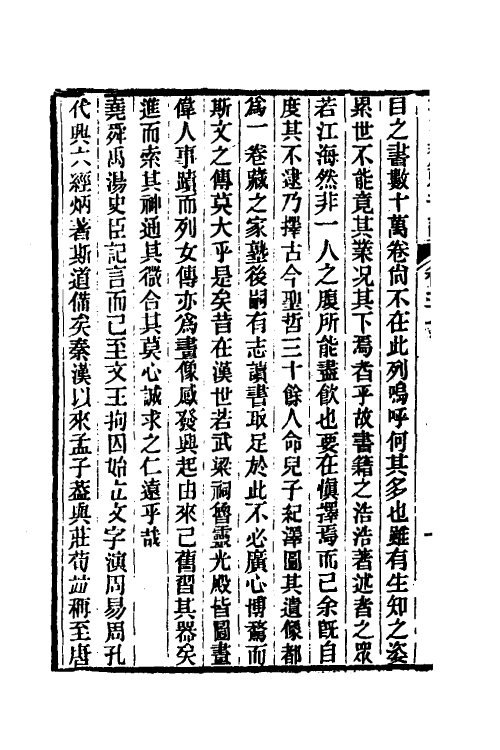 目之書數十萬卷尙不在此列嗚呼何其多也雖有生知之姿
累世不能竟其業况其下焉者乎故書籍之浩浩著述者之眾
若江海然非一人之腹所能盡飲也要在愼擇焉而已余旣自
度其不逮乃擇古今聖哲三十餘人命兒子紀澤圖其遺像都
爲一卷藏之家塾後嗣有志讀書取足於此不必廣心博騖而
斯文之傳莫大乎是矣昔在漢世若武梁祠魯靈光殿皆圖畫
偉人事蹟而列女傳亦爲畫像感發興起由來已舊習其器矣
進而索其神通其微合其莫心誠求之仁遠乎哉
堯舜禹湯史臣記言而已至文王拘囚始立文字演周易周孔
代興六經炳著斯道備矣秦漢以來孟子葢與莊荀並稱至唐